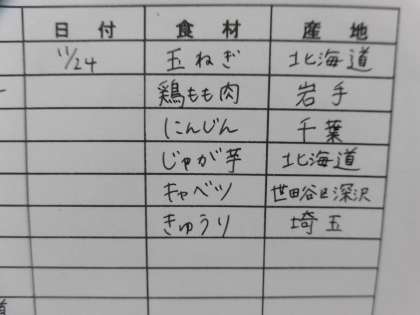 日付 食材 産地
11/24 玉ねぎ 北海道
鶏もも肉 岩手
にんじん 千葉
じゃが芋 北海道
キャベツ 世田谷区深沢
きゅうり 埼玉
道